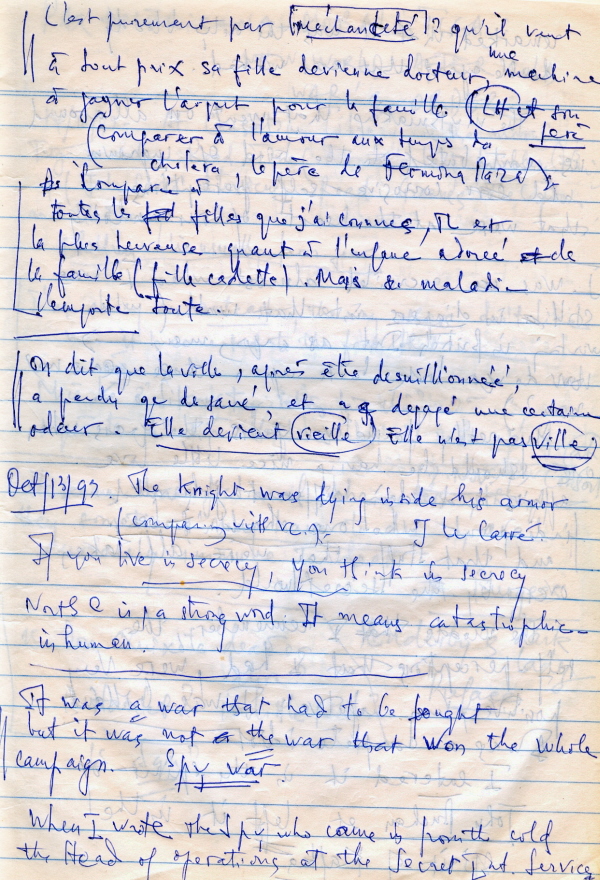 C'est purement par méchanceté ? qu'il veut
à tout prix sa fille devienne docteur, une machine
à gagner l'argent pour la famille. (LH et son père
(Comparer à l'amour aux temps du
cholera, le père de Fermina Daza).
Comparé à
toutes les filles que j'ai connues, Il est
la plus heureuse quant à l'enfance adorée de
la famille (fille cadette). Mais sa maladie
l'emporte toute.
On dit que la ville, après être
a perdu de, et a dégagé une certaine
odeur. Elle devient vieille Elle n'est pas ville?
Oct/13/93. The Knight was dying inside his armor
(comparing with vc.). J le Carré.
If you live in secrecy, you think in secrecy
is a strong word. It means catastrophic
inhuman.
It was a war that had to be fought
but it was not the war that won the whole
campaign. Spy war.
When I wrote the Spy who came in from the cold
the Head of operations at the Secret Int. Service